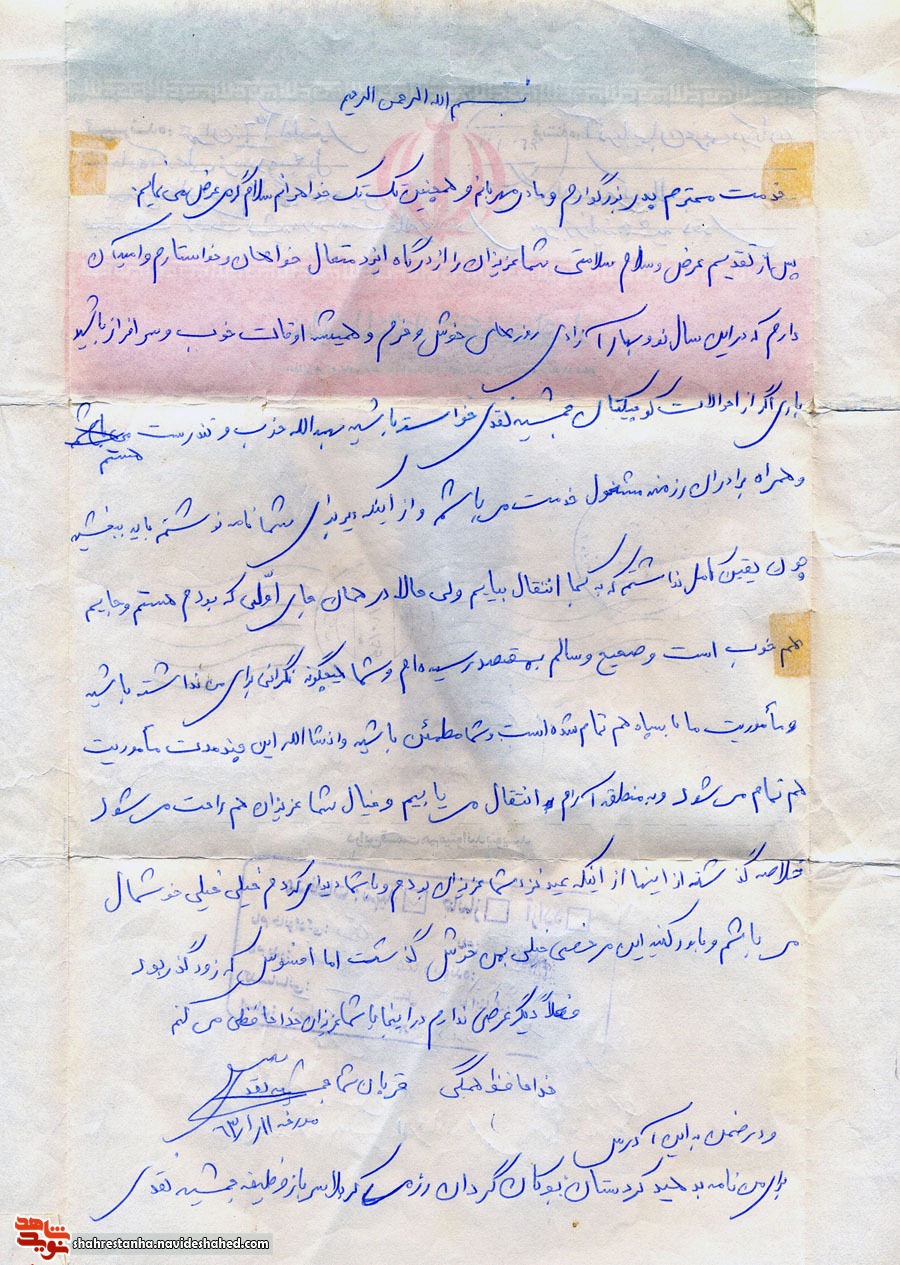 بسم الله الرحمن الرحیم
خدمت محترم پدر بزرگوارم و مادر مهربانم و همچنین تک تک خواهرانم سلام گرم عرض می نمایم.
پس از تقدیم عرض وسلام سلامتی شما عزیزان را از درگاه ایزد متعال خواهان و خواستارم و امید آن
دارم که در این سال نو و بهار آزادی روزهای خوش و خرم و همیشه اوقات خوب و سرافراز باشید
باری اگر از احوالات کوچیکتان جمشید نقدی خواسته باشید بحمدالله خوب و تندرست
هستم
و همراه برادران رزمنده مشغول خدمت می باشم و از اینکه دیر برای شما نامه نوشتم باید ببخشید
چون یقین کامل نداشتم که به کجا انتقال بیایم ولی حالا در همان جای اوّلی که بودم هستم و جایم
هم خوب است و صحیح و سالم به مقصد رسیده ام و شما هیچگونه نگرانی برای من نداشته باشید
و مأموریت ما با سپاه هم تمام شده است و شما مطمئن باشید و انشاالله این چند مدت مأموریت
هم تمام می شود و به منطقه آرام انتقال می یابیم و خیال شما عزیزان هم راحت می شود
خلاصه گذشته از اینها از اینکه عید نزد شما عزیزان بودم و با شما دیداری کردم خیلی خیلی خوشحال
می باشم و باور کنید این مرخصی خیلی بمن خوش گذشت اما افسوس که زود گذر بود
فعلاً دیگر عرضی ندارم در اینجا با شما عزیزان خداحافظی می کنم
خداحافظ همگی قربان شما جمشید نقدی
مورخه ۶۳/۱/۱۱
و در ضمن به این آدرس
برای من نامه بدهید کردستان بوکان گردان رزمی سرباز وظیفه جمشید نقدی
شاهد
نوید
shahrestanha.navideshahed.com